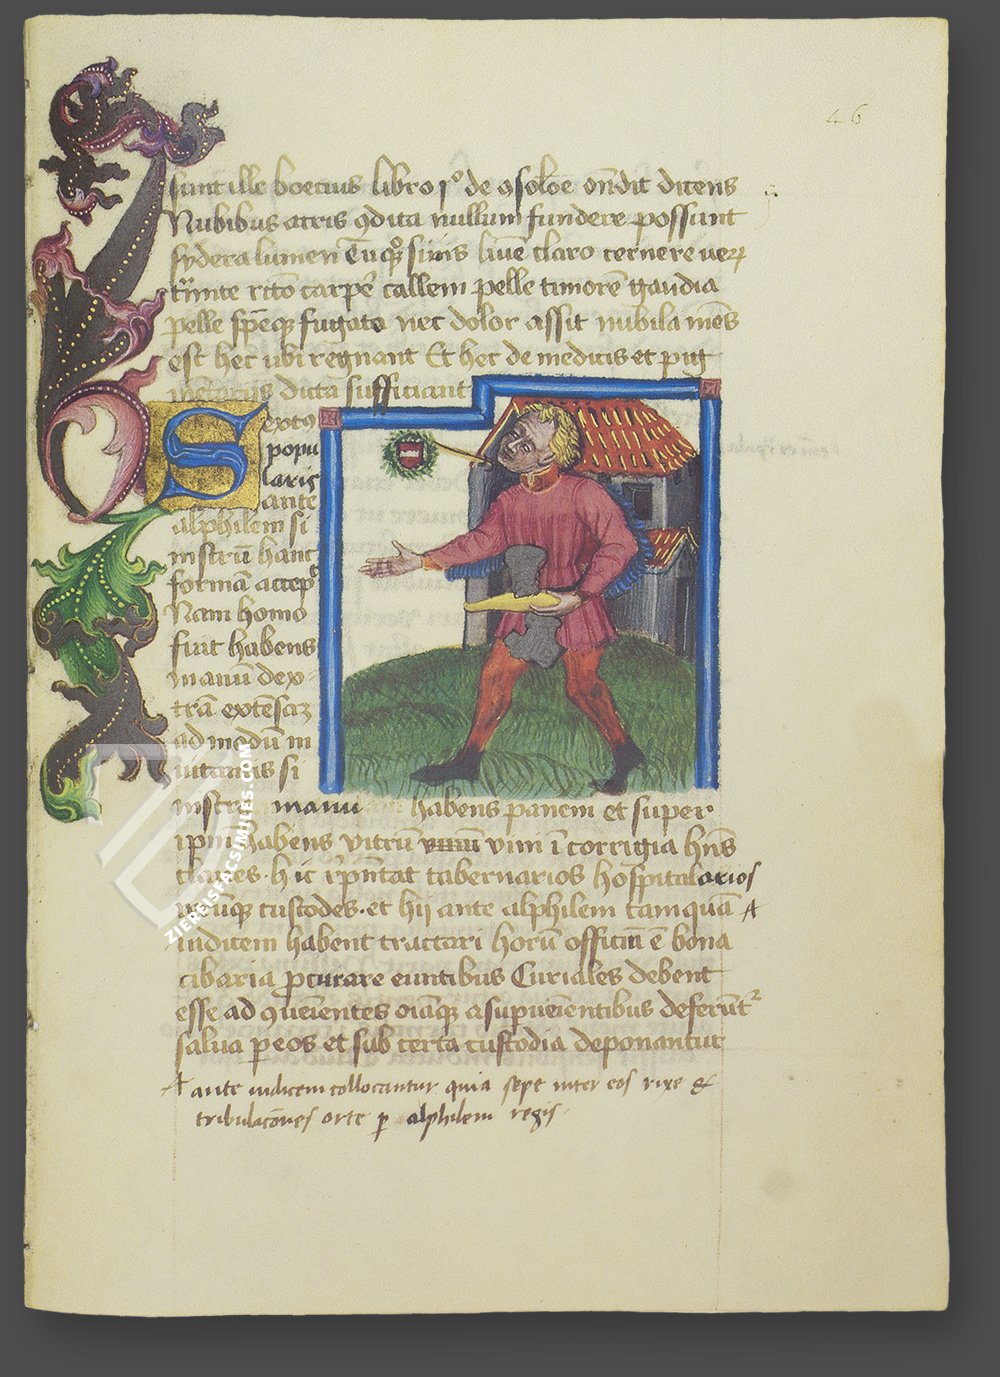 46
sunt ille boecius libro p̊ de ꝯsolõe oñdit dicens
Nubibus atris ꝯdita nullum fundere possunt
sydera lumen
claro cernere veꝝ
callem pelle timorẽ gaudia
pelle speq̃ fugato nec dolor assit nubila mẽs
est hec ubi regnant Et hec de medicis et pig
metariis dicta sufficiant
Sextꝯ
popu
laris
ante
alphilem si
nistrũ hanc
formã accep̃
Nam homo
fuit habens
manũ dex
trã extẽsaꝫ
ad modũ in
vitantis si
nistra manu habens panem et super
ip̃m habens vitrũ vini ĩ corrigia hñs
claves. hic rp̃ñtat tabernarios hospitalarios
custodes. et hij ante alphilem tamquã
iudicem habent tractari horũ officiũ ẽ bona
cibaria ꝓcurare euntibus Curiales debent
esse ad
deferunt
salva ꝑ eos et sub certa custodia deponantur
ante iudicem collocantur quia sepe inter eos rixe &
tribulacões orte ꝑ alphilem regis
ZIEREISFACSIMILES.COM